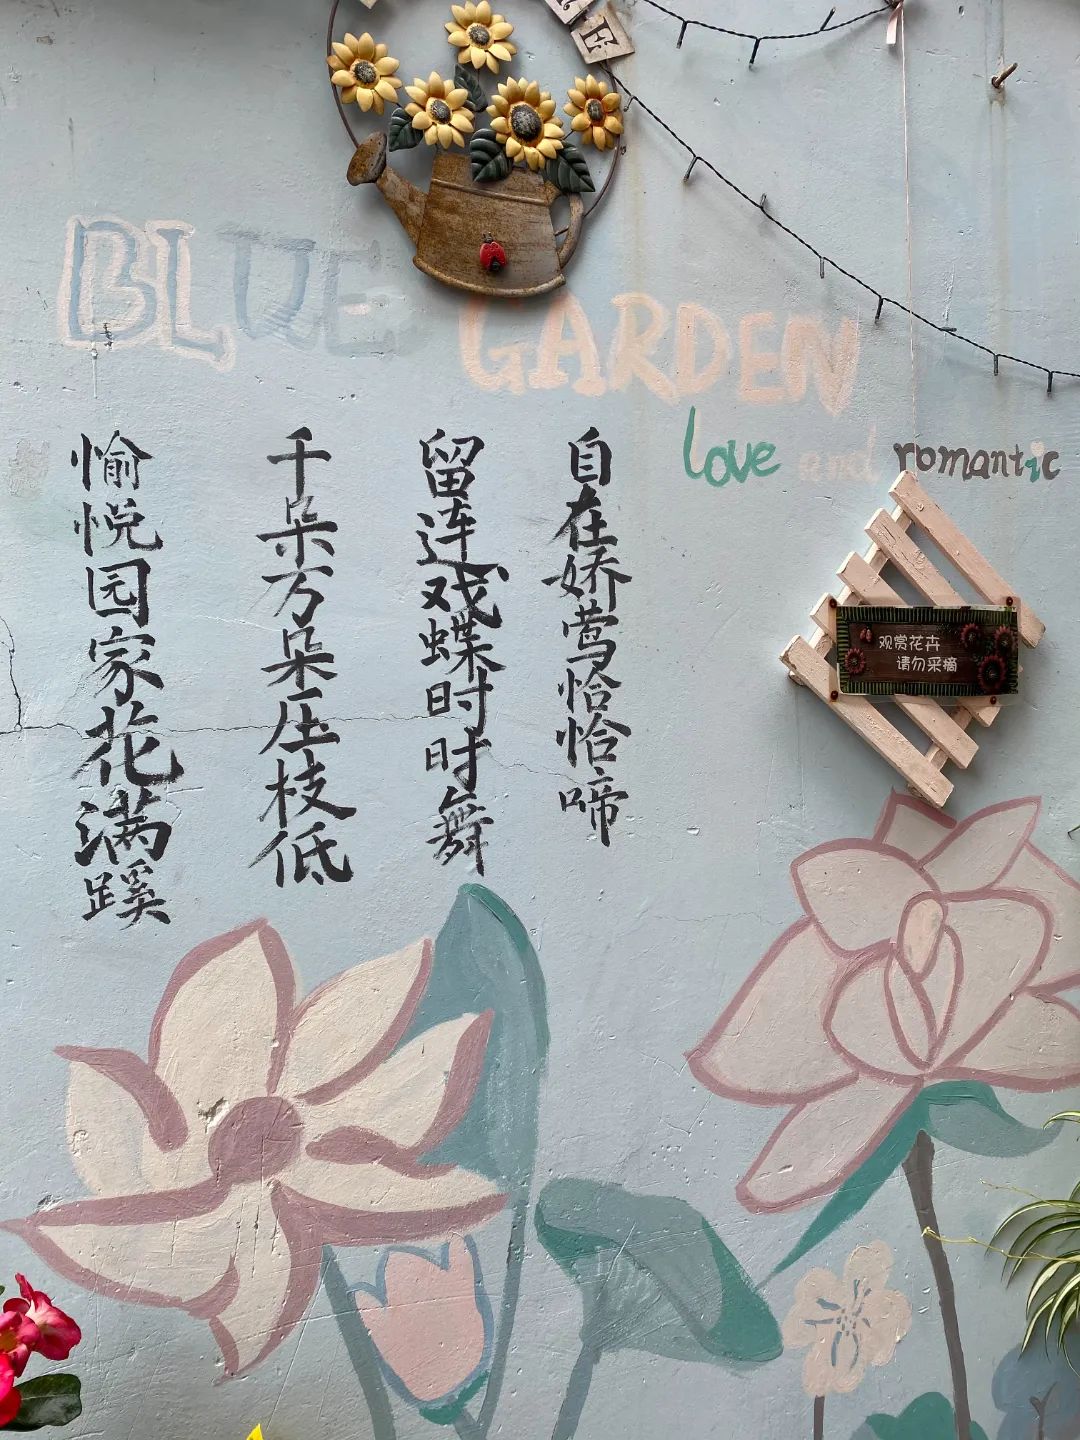 BLUE
GARDEN
love and romantic
愉悦园家花满蹊
千朵万朵压枝低
留连戏蝶时时舞
自在娇莺恰恰啼
观赏花卉
请勿采摘
E